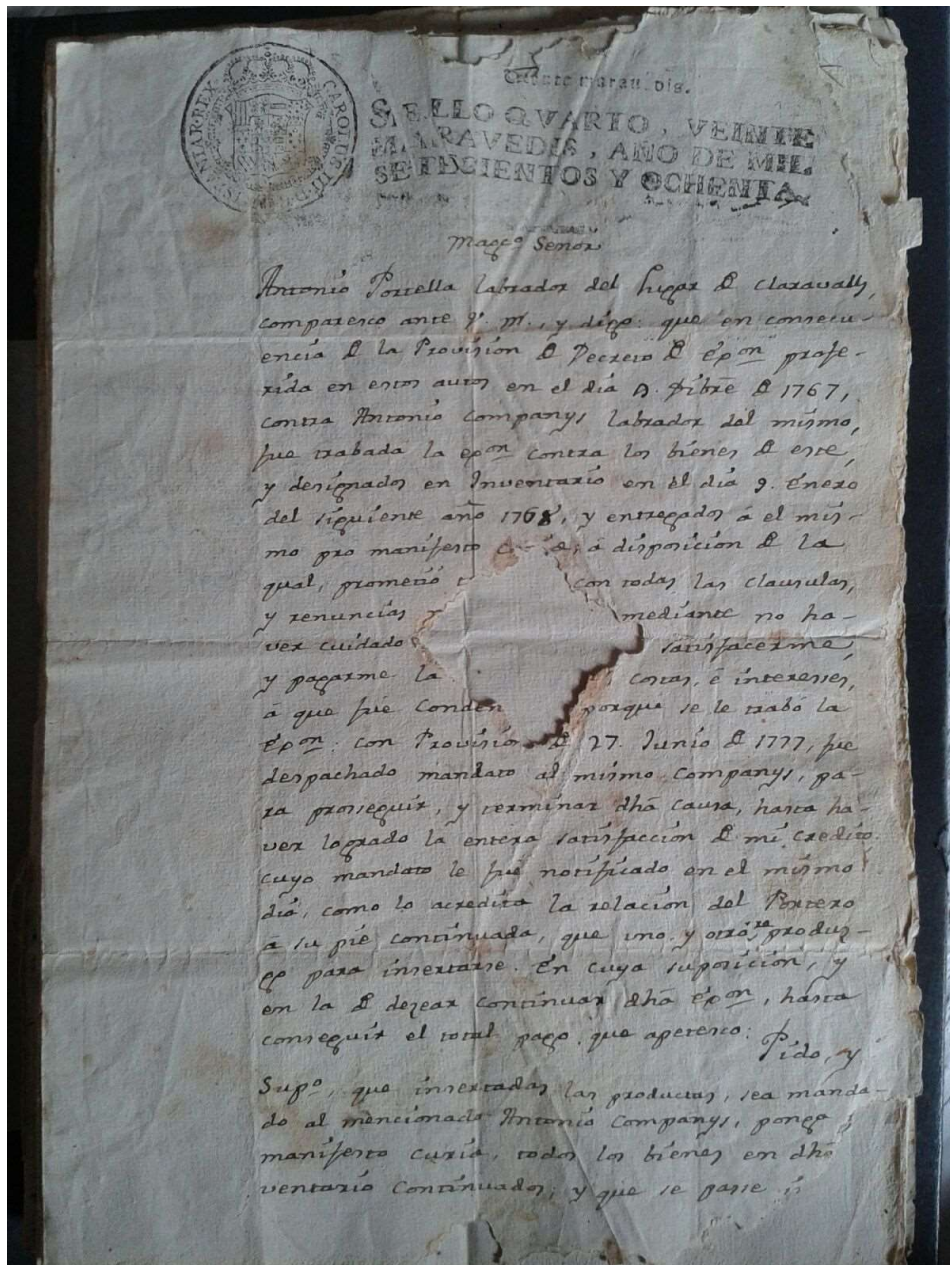 CAROLUS III D G HISPANIAR REX
SELLO QVARTO, VEINTE
MARAVEDIS, AÑO DE MIL
SETECIENTOS Y OCHENTA.
Magco Señor
Antonio Portella labrador del lugar D Claravalls,
comparesco ante V. M., y digo: que en consecu-
encia D la Provision D Decreto D épon profe-
rida en estos autos en el dia 9. Xibre D 1767,
contra Antonio Companys labrador del mismo,
fue trabada la epon contra los bienes D este,
y designados en Inventario en el dia 9. Enero
del siguiente año 1768, y entregados á el mis-
mo pro manifesto á disposicion D la
qual, prometió con todas las clausulas,
y renuncias mediante no ha-
ver cuidado satisfacerme,
y pagarme la costas, é interesses,
á que fué Conden porque se le trabó la
épon: con Provision D 27. Junio D 1777, fue
despachado mandato al mismo Companys, pa-
ra prosseguir, y terminar dha causa, hasta ha-
ver logrado la entera satisfaccion D mi credito.
cuyo mandato le fué notificado en el mismo
dia, como lo acredita la relacion del Portero
á su pie continuada, que uno y otro produz-
go para insertarse. En cuya suposicion, y
en la D dezear continuar dha épon, hasta
conseguir el total pago que apetesco: Pido, y
Supo, que insertadas las productas, sea manda-
do al mencionado Antonio Companys, ponga
manifesto curia, todos los bienes en dho
ventario Continuados; y que se passe